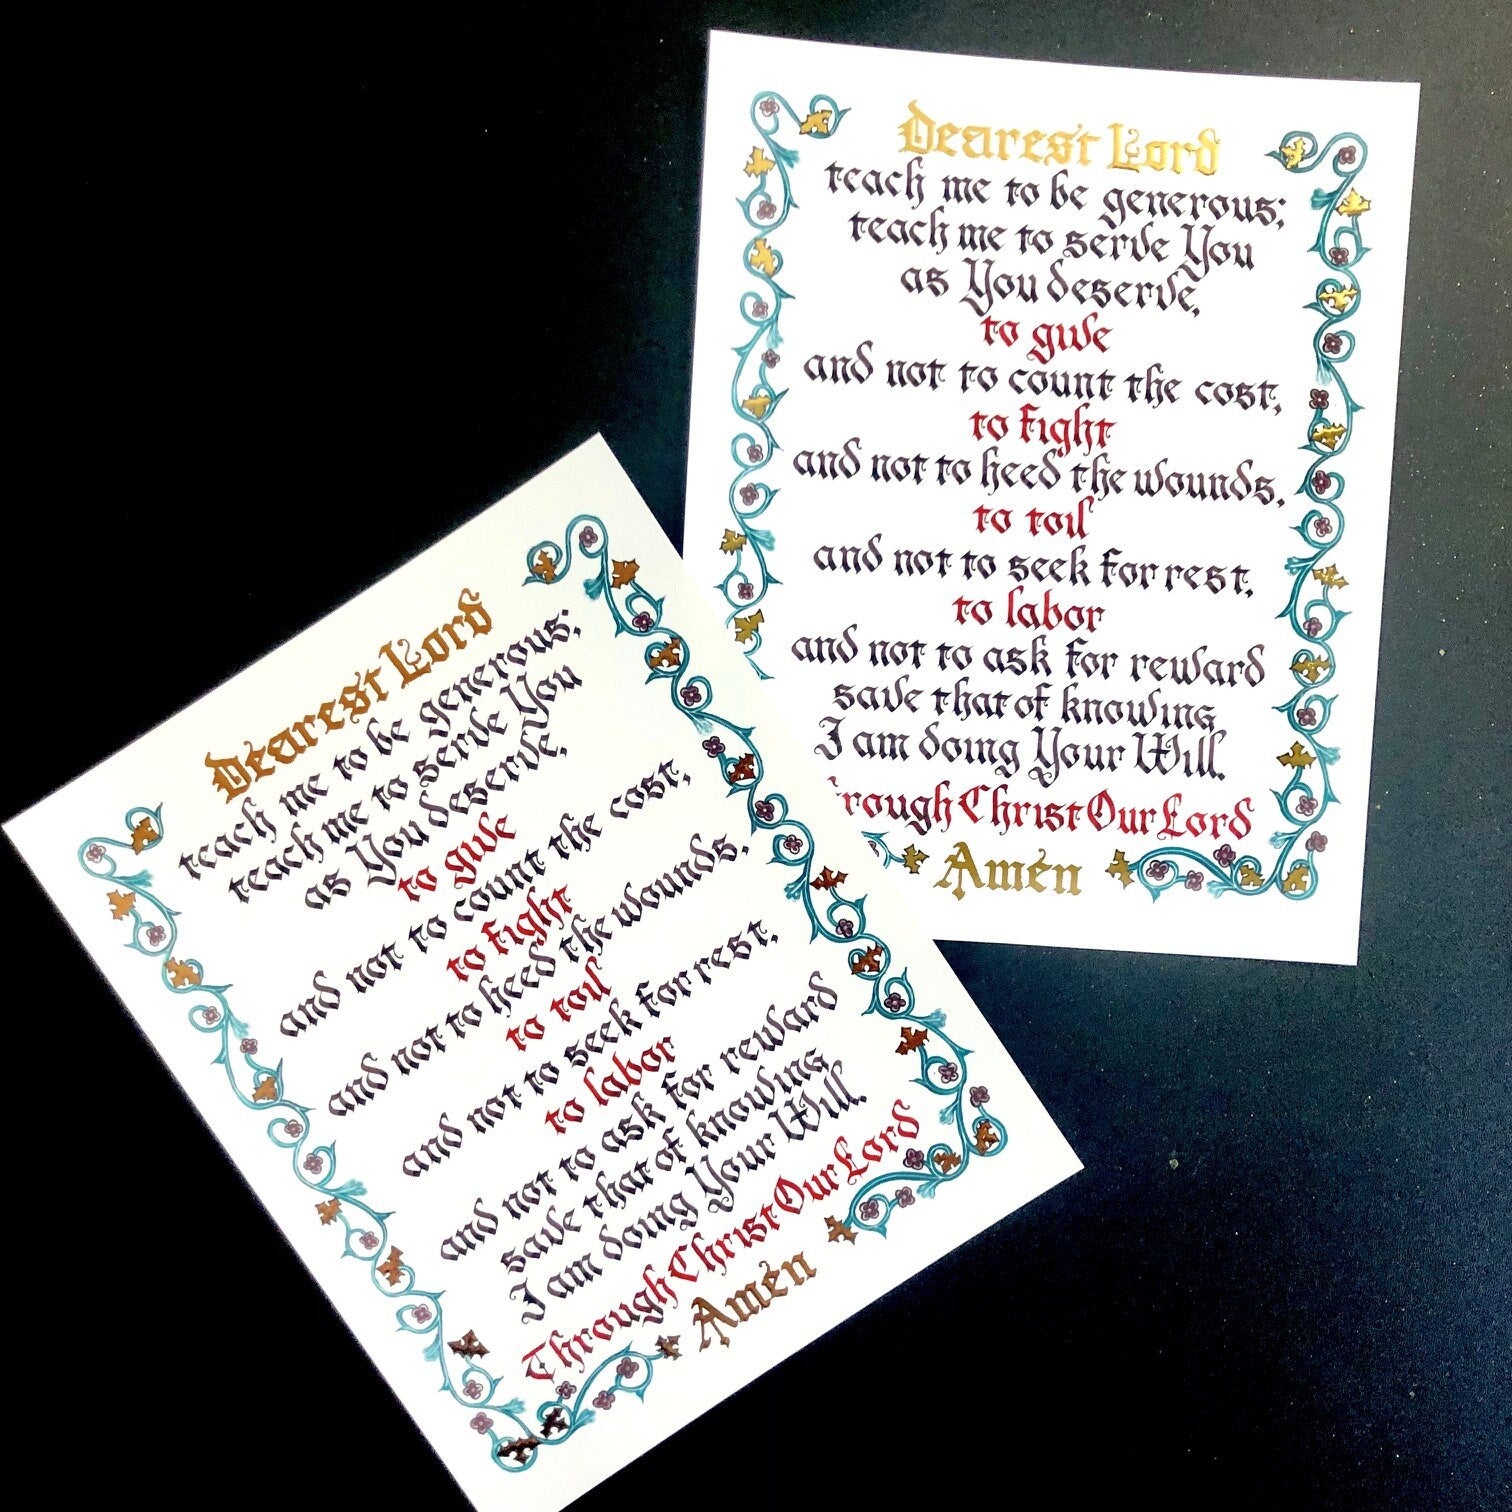 Dearest Lord
teach me to be generous;
teach me to serve You
as You deserve,
to give
and not to count the cost,
to fight
and not to heed the wounds,
to toil
and not to seek for rest,
to labor
and not to ask for reward
save that of knowing
I am doing Your Will.
Through Christ Our Lord
Amen
Dearest Lord
teach me to be generous;
teach me to serve You
as You deserve,
to give
and not to count the cost,
to fight
and not to heed the wounds,
to toil
and not to seek for rest,
to labor
and not to ask for reward
save that of knowing
I am doing Your Will.
rough Christ Our Lord
Amen